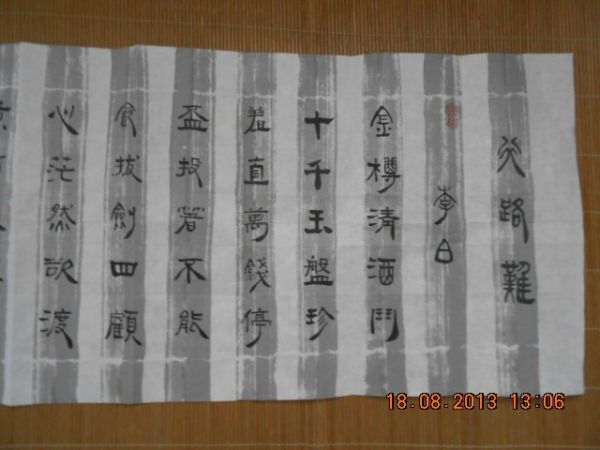 行路難
李白
金樽清酒鬥
十千玉盤珍
羞直萬錢停
盃投著不能
食拔劍四顧
心茫然欲渡
18.08.2013 13:06